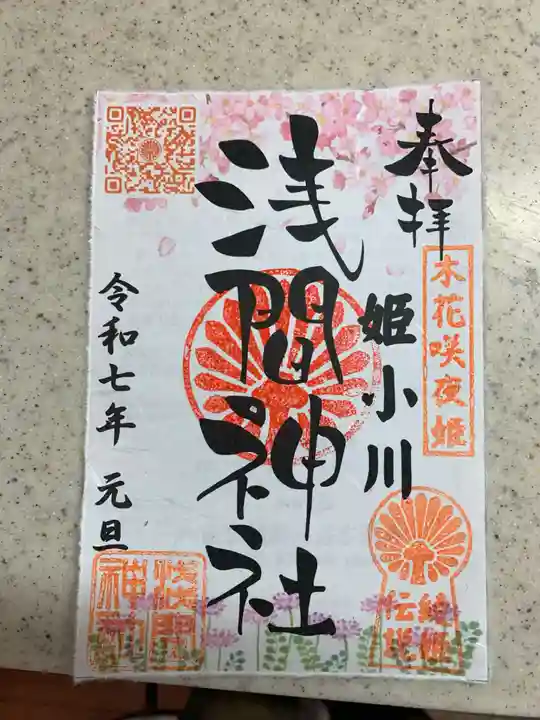 奉拝
木花咲夜姫
姫小川
浅間神社
綾姫
伝承
浅間
神社
令和七年 元旦